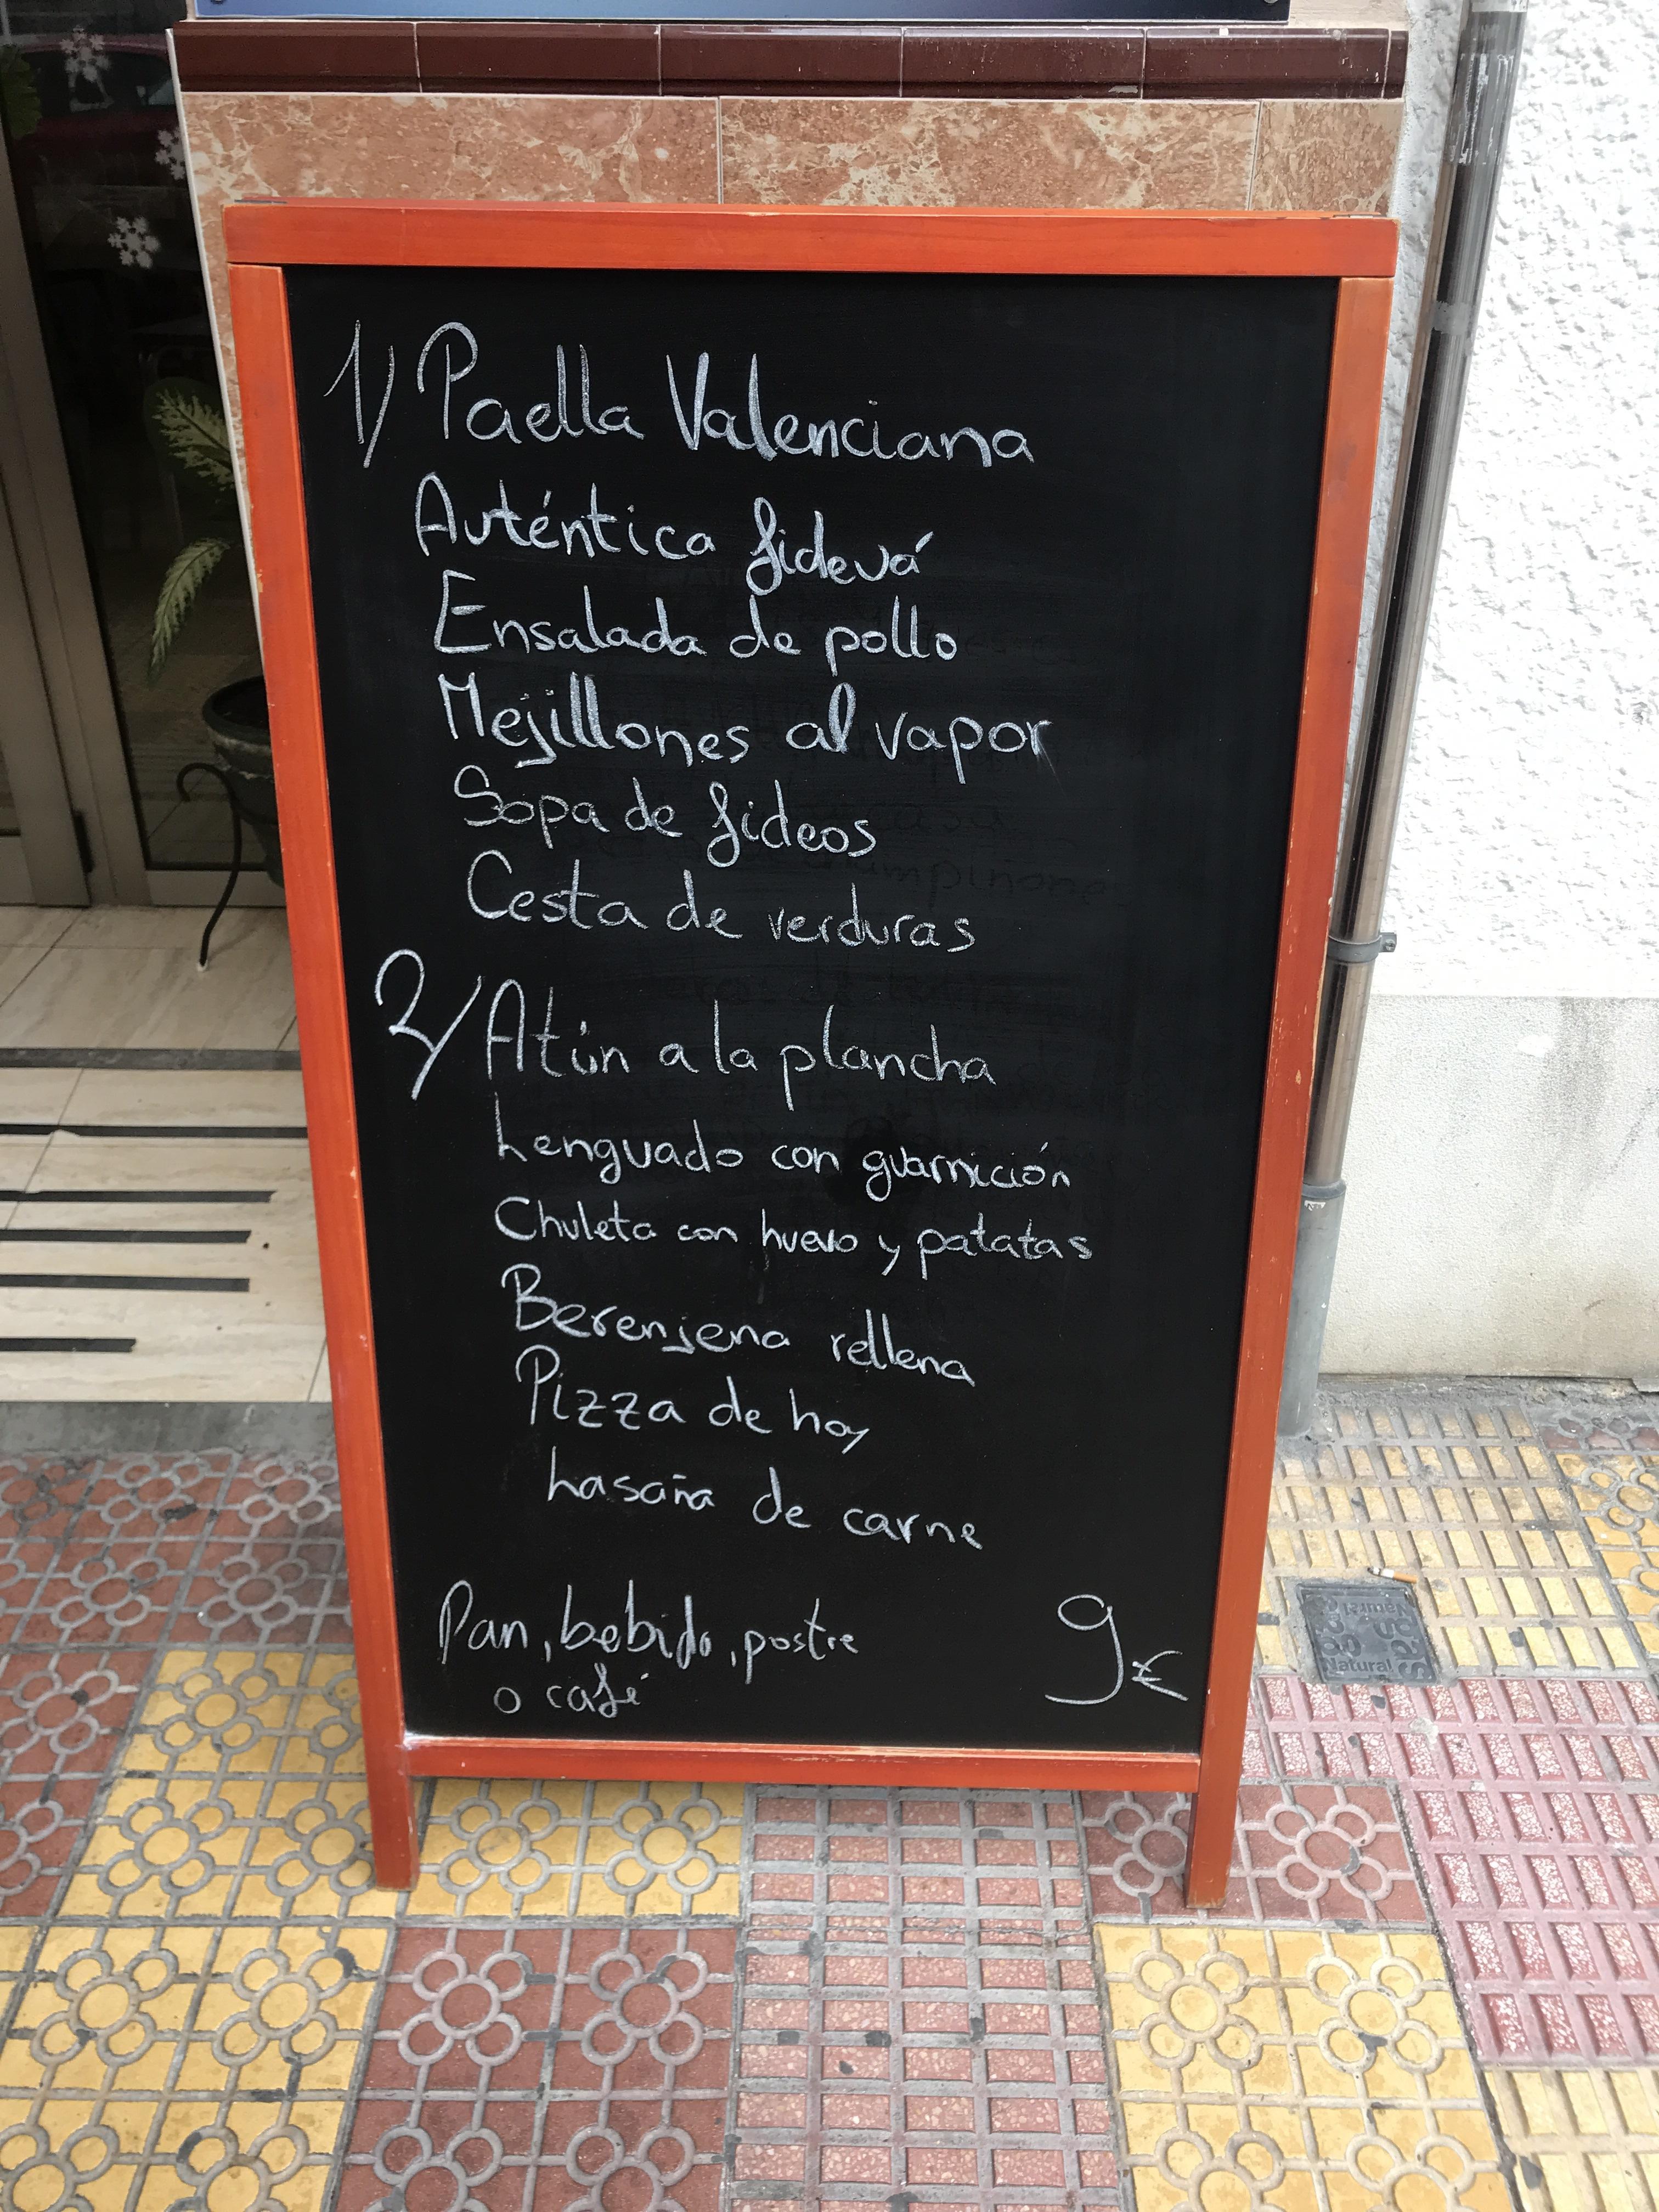 1/ Paella Valenciana
Auténtica fideuá
Ensalada de pollo
Mejillones al vapor
Sopa de fideos
Cesta de verduras
2/ Atún a la plancha
Lenguado con guarnición
Chuleta con huevo y patatas
Berenjena rellena
Pizza de hoy
Lasaña de carne
Pan, bebida, postre
o café
9€
Gas
Natural